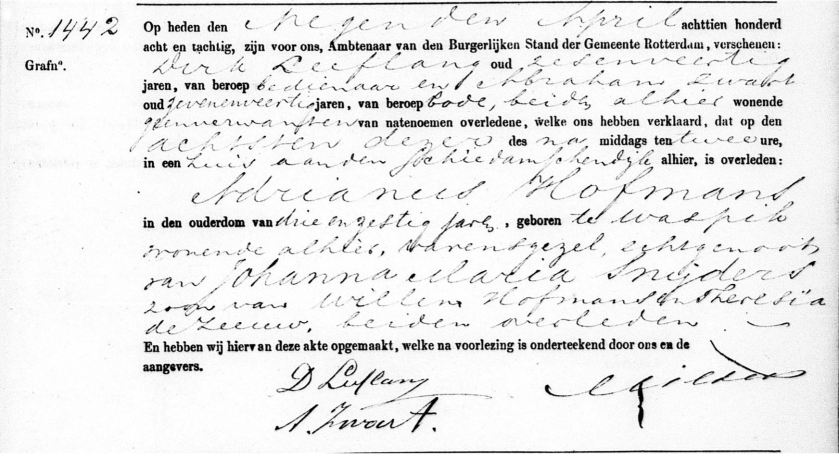 No. 1442 Op heden den Negenden April achttien honderd
acht en tachtig, zijn voor ons, Ambtenaar van den Burgerlijken Stand der Gemeente Rotterdam, verschenen:
Grafno. Dirk Leeflang oud zesenveertig
jaren, van beroep bedienaar en Abraham Zwart
oud zevenenveertig jaren, van beroep bode, beiden alhier wonende
geenverwanten van natenoemen overledene, welke ons hebben verklaard, dat op den
achtsten dezer des na middags ten twee ure,
in een huis aan den Schiedamschendijk alhier, is overleden:
Adrianus Hofmans
in den ouderdom van drie en zestig jaren, geboren te Waspik
wonende alhier, varensgezel, echtgenoot
van Johanna Maria Snijders
zoon van Willem Hofmans en Theresia
de Zeeuw, beiden overleden
En hebben wij hiervan deze akte opgemaakt, welke na voorlezing is onderteekend door ons en de
aangevers.
D Leeflang
A. Zwart.